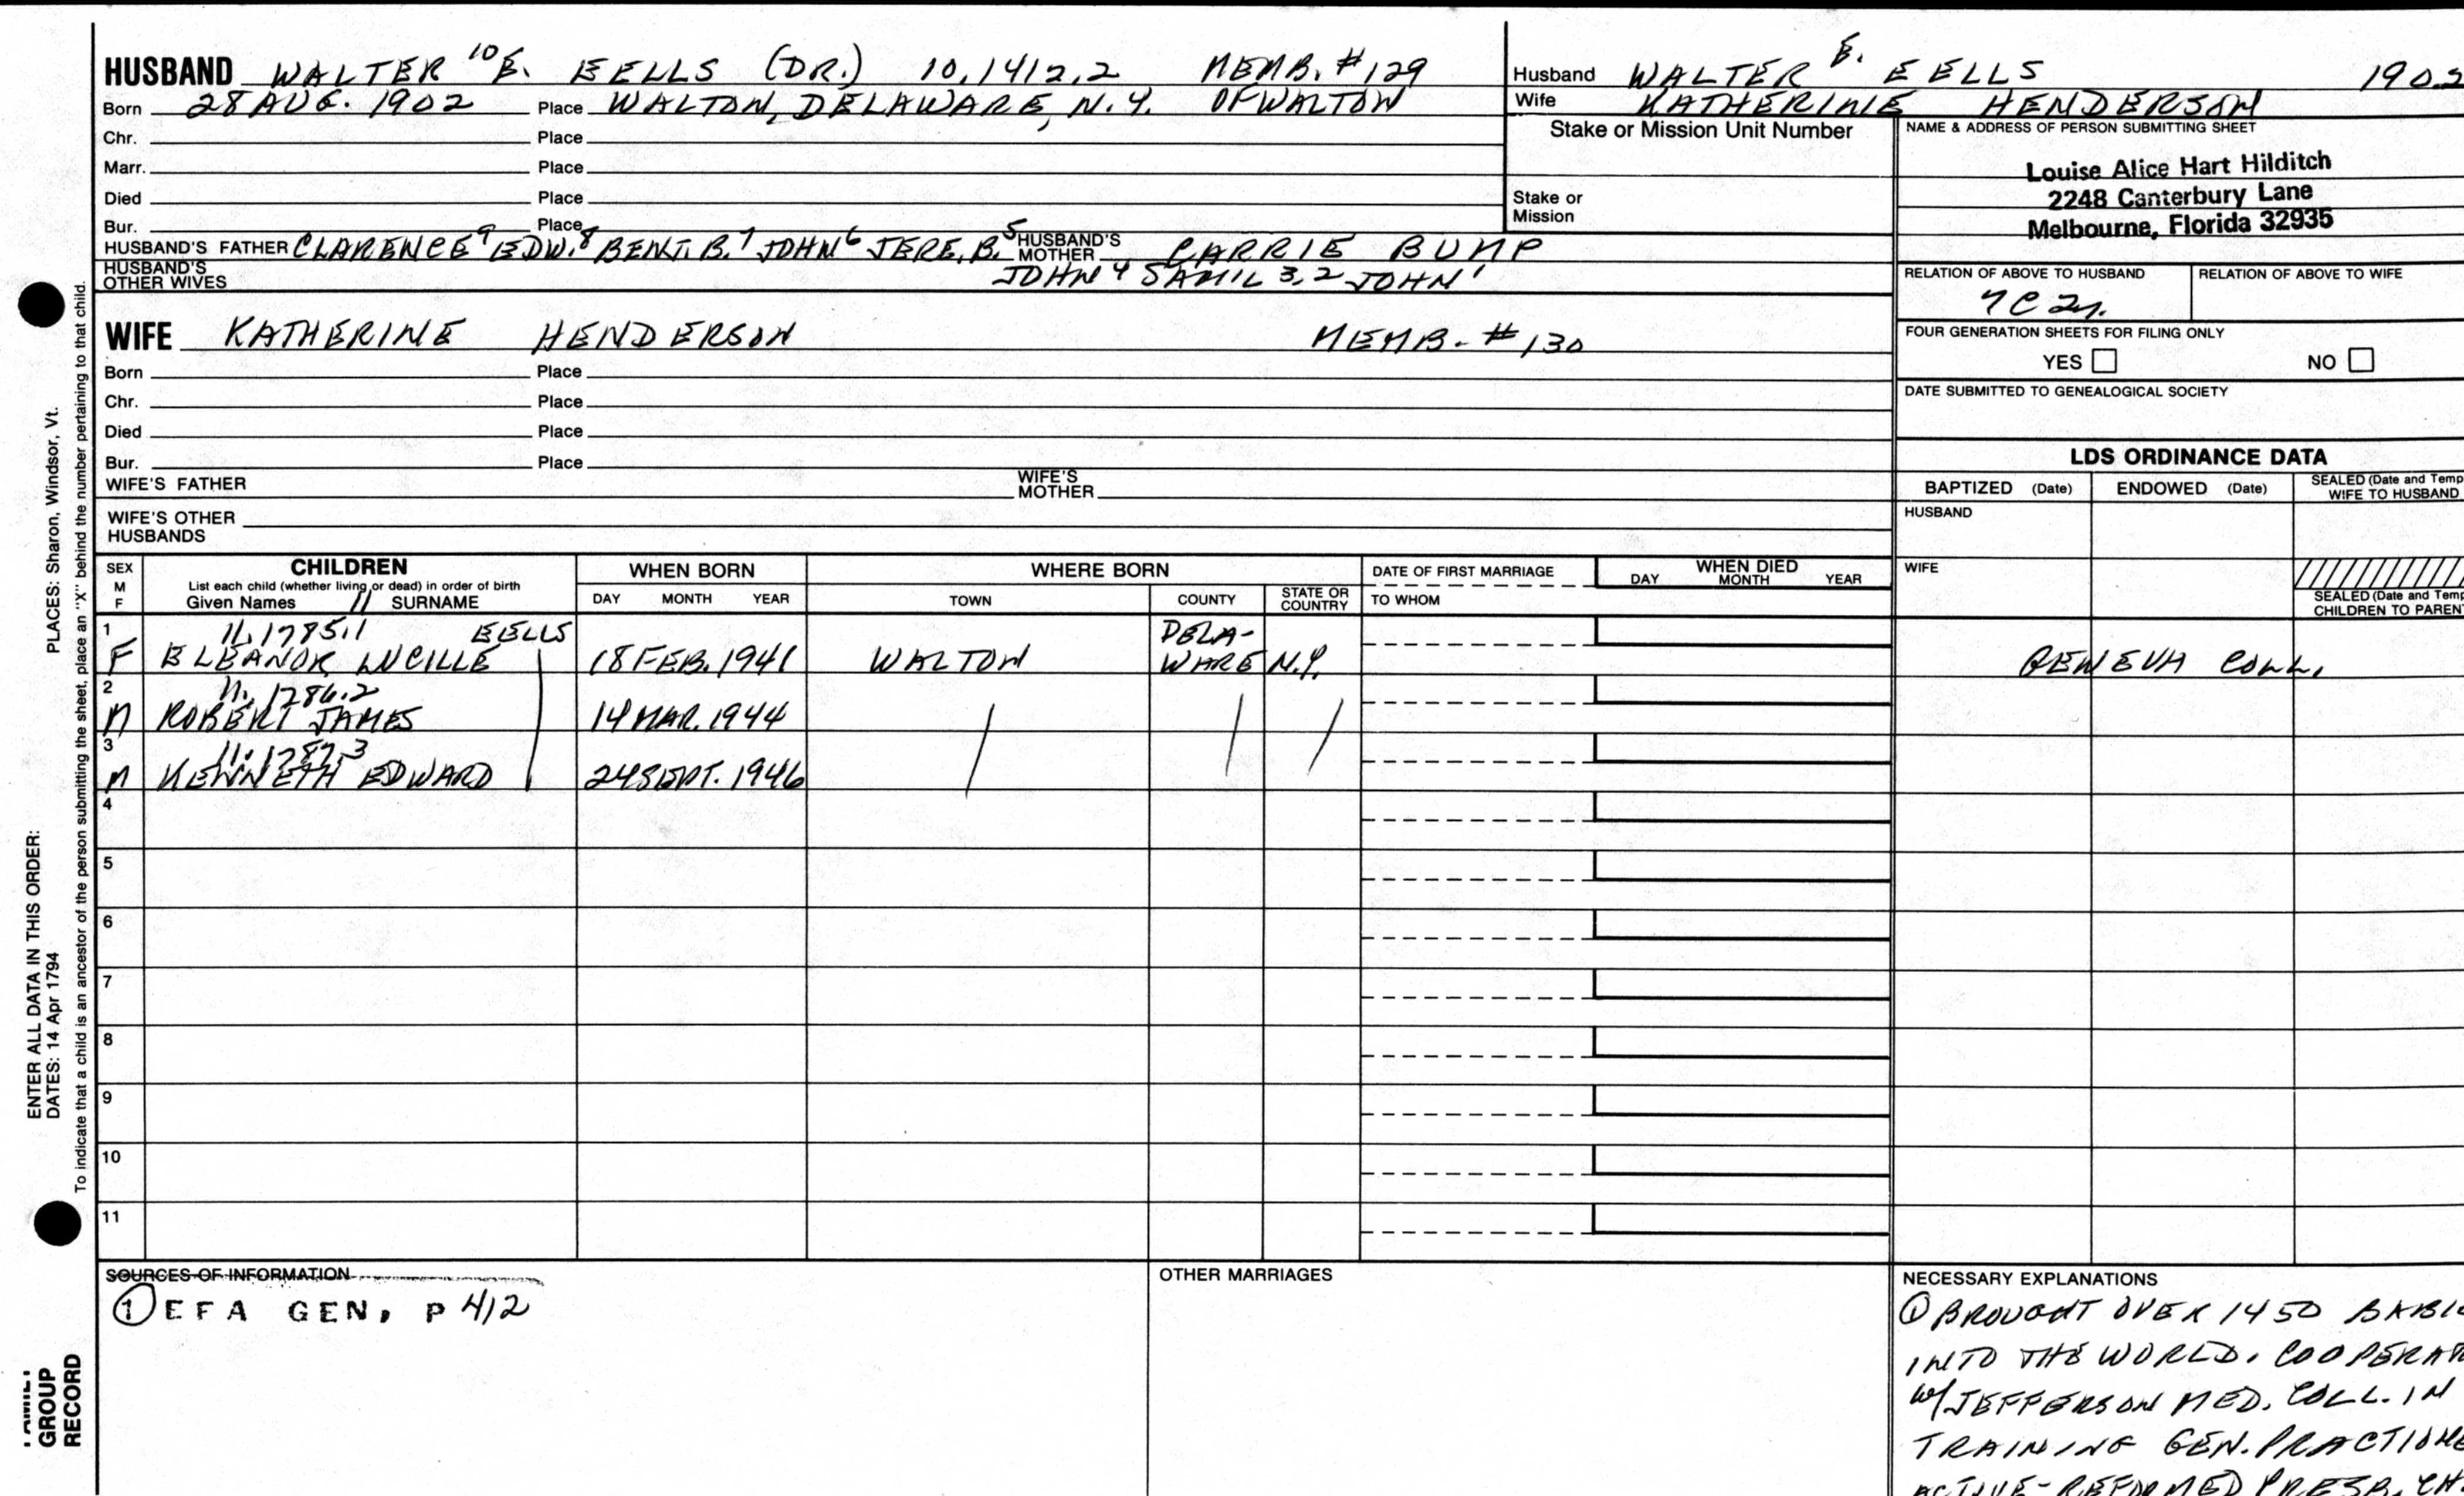 HUSBAND WALTER 10 E. EELLS (DR.) 10,1412,2 MEMB. #129
Born 28 AUG. 1902 Place WALTON, DELAWARE, N.Y. OF WALTON
Chr. Place
Marr. Place
Died Place
Bur. Place
HUSBAND'S FATHER CLARENCE 9 EDW. 8 BENJ. B. 7 JOHN 6 JERE. B. 5 HUSBAND'S MOTHER CARRIE BUMP
HUSBAND'S OTHER WIVES JOHN 4 SAM'L 3,2 JOHN 1
WIFE KATHERINE HENDERSON MEMB. #130
Born Place
Chr. Place
Died Place
Bur. Place
WIFE'S FATHER WIFE'S MOTHER
WIFE'S OTHER HUSBANDS
Husband WALTER E. EELLS 1902
Wife KATHERINE HENDERSON
Stake or Mission Unit Number
Stake or Mission
NAME & ADDRESS OF PERSON SUBMITTING SHEET
Louise Alice Hart Hilditch
2248 Canterbury Lane
Melbourne, Florida 32935
RELATION OF ABOVE TO HUSBAND RELATION OF ABOVE TO WIFE
7C 2r.
FOUR GENERATION SHEETS FOR FILING ONLY
YES NO
DATE SUBMITTED TO GENEALOGICAL SOCIETY
LDS ORDINANCE DATA
BAPTIZED (Date) ENDOWED (Date) SEALED (Date and Temp
WIFE TO HUSBAND
HUSBAND
WIFE
SEALED (Date and Temp
CHILDREN TO PAREN
SEX M F CHILDREN WHEN BORN WHERE BORN DATE OF FIRST MARRIAGE WHEN DIED
List each child (whether living or dead) in order of birth
Given Names 11 SURNAME DAY MONTH YEAR TOWN COUNTY STATE OR COUNTRY TO WHOM DAY MONTH YEAR
1 11,1785,1 EELLS DELA-
F ELEANOR LUCILLE 18 FEB. 1941 WALTON WARE N.Y. GENEVA COLL.
2 11,1786.2
M ROBERT JAMES 14 MAR. 1944
3 11.1787.3
M KENNETH EDWARD 24 SEPT. 1946
4
5
6
7
8
9
10
11
SOURCES OF INFORMATION
① EFA GEN, P 412
OTHER MARRIAGES
NECESSARY EXPLANATIONS
① BROUGHT OVER 1450 BABIE
INTO THE WORLD. COOPERAT
W/JEFFERSON MED. COLL. IN
TRAINING GEN. PRACTIONE
ACTIVE-REFORMED PRESB. CH
PLACES: Sharon, Windsor, Vt.
ENTER ALL DATA IN THIS ORDER:
DATES: 14 Apr 1794
To indicate that a child is an ancestor of the person submitting the sheet, place an "X" behind the number pertaining to that child.
FAMILY
GROUP
RECORD